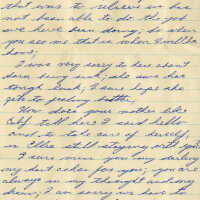 that was to relieve us has
not been able to do the job
we have been doing; so when
you see me that is when I will be
home;
I was very sorry to hear about
dora being sick; she sure has
tough luck; I sure hope she
gets to feeling better;
How does your mother like
Calif. tell her I said hello
and to take care of herself;
is Ellie still staying with you
I sure miss you my darling
my heart aches for you; you are
always in my thought and my
dreams; I am sorry we have to